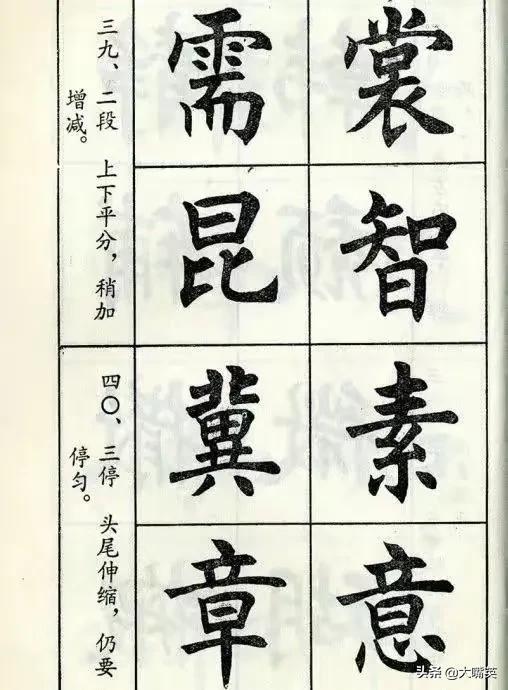 裳智
需昆
三九、二段 上下平分，稍加
增减。
素意
冀章
四〇、三停 头尾伸缩，仍要
停匀。
头条 @大嘴英